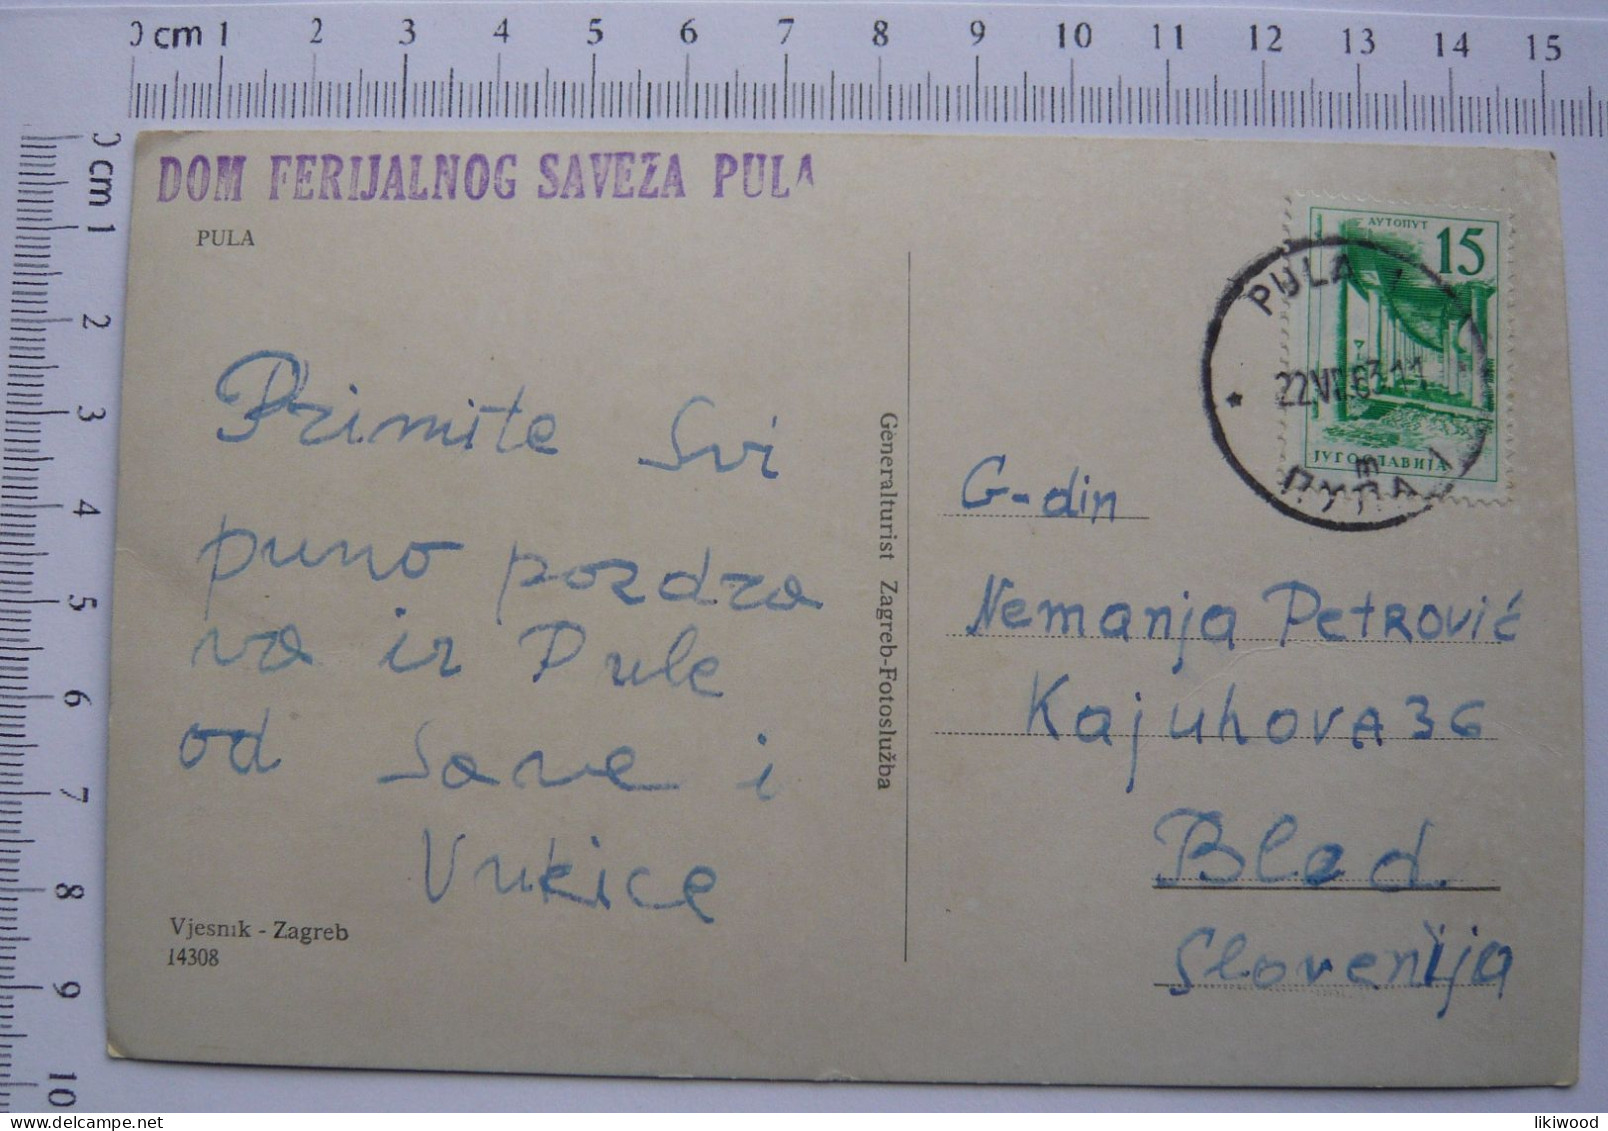 0 cm 1 2 3 4 5 6 7 8 9 10 11 12 13 14 15
0 cm 1 2 3 4 5 6 7 8 9 10
DOM FERIJALNOG SAVEZA PULA
PULA
Primite Svi
puno pozdra
va iz Pule
od Save i
Vukice
Vjesnik - Zagreb
14308
Generalturist Zagreb-Fotoslužba
АУТОПУТ
15
ЈУГОСЛАВИЈА
PULA 1
22.VI.63-11
ПУЛА 1
G-din
Nemanja Petrović
Kajuhova 36
Bled
Slovenija
likiwood